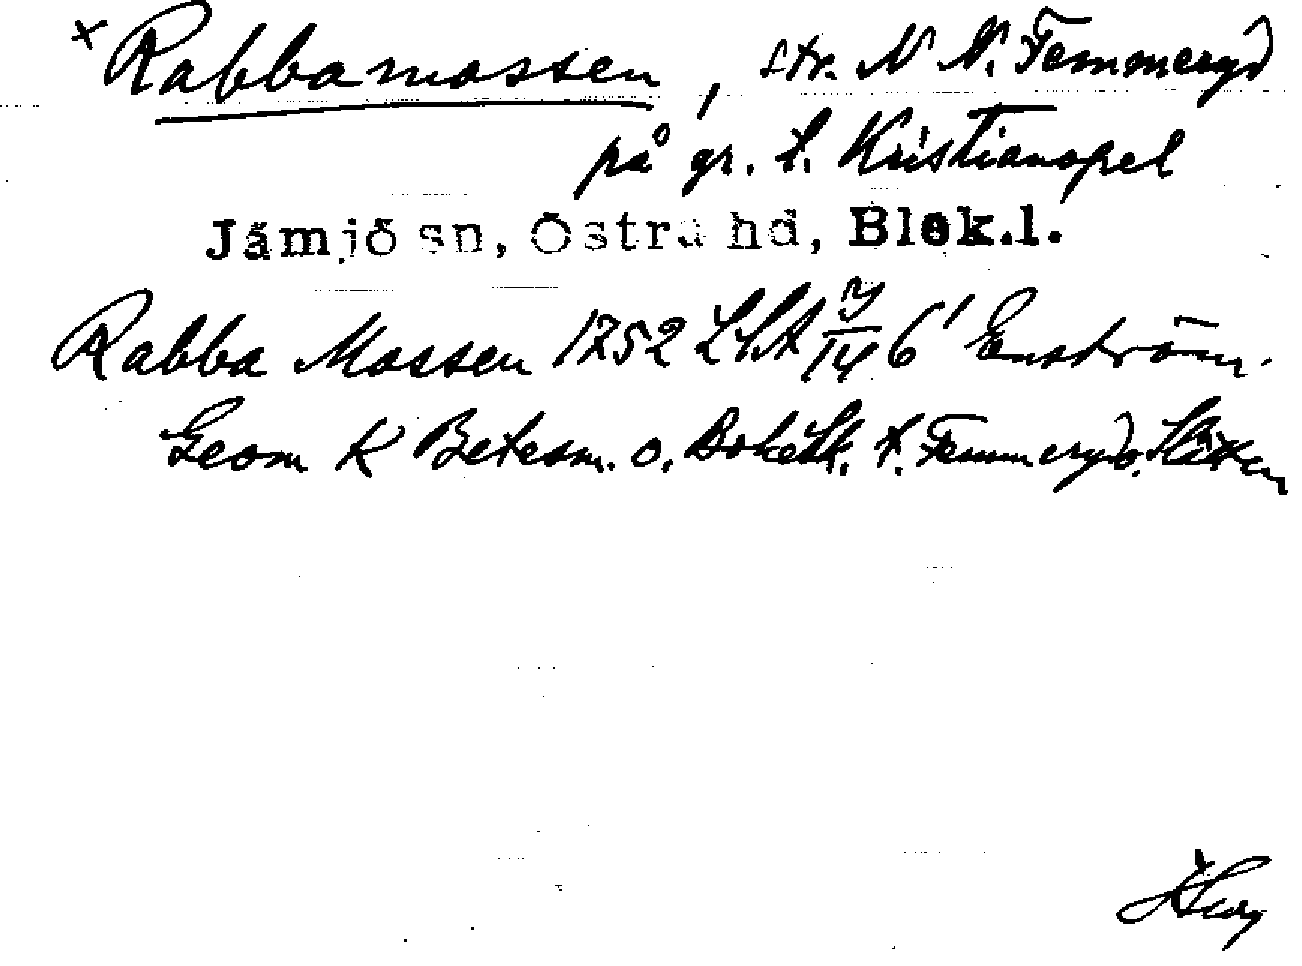 × Rabbamossen, str. N N. Femmeryd
på gr. t. Kristianopel
Jämjö sn, Östra hd, Blek.l.
Rabba Mossen 1752 LSA 6' Enström.
Geom K Betesm. o. t. Femmeryd o.